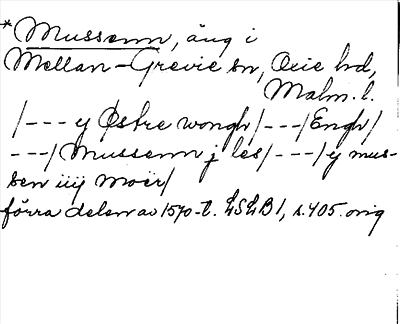 *Mussenn, äng i
Mellan-Grevie sn, Oxie hd,
Malm. l.
/--- y Østre wongh/---/Engh/
---/Mussenn j les/---/y mus-
sen iiij moër/
förra delen av 1570-t. LSLB 1, s. 405. orig